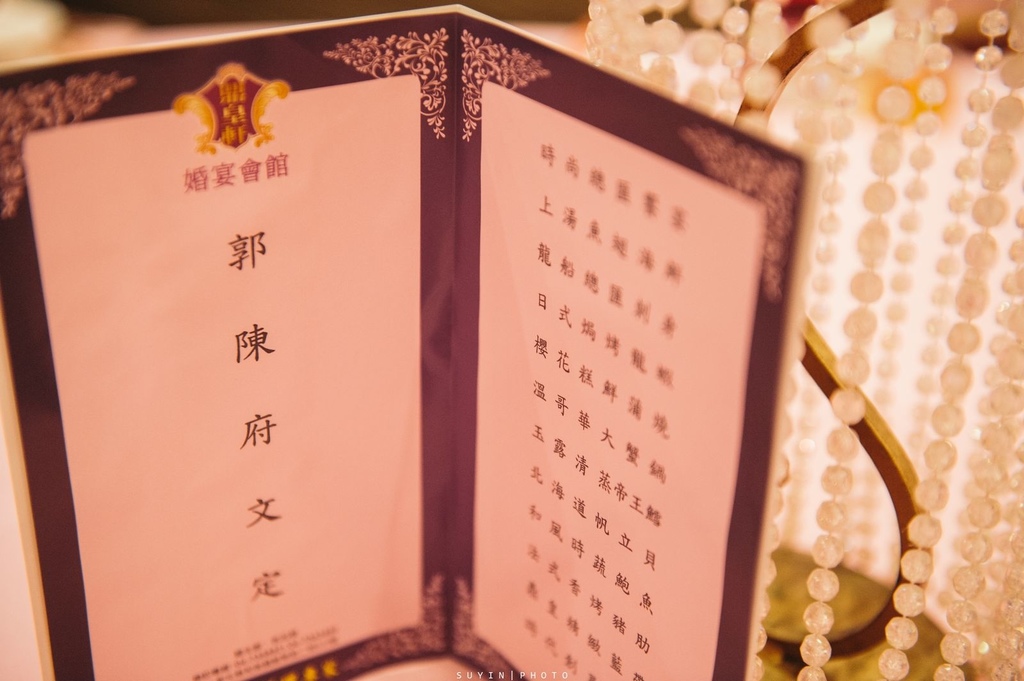 鼎皇軒
婚宴會館
郭陳府文定
時尚總匯薈萃
上湯魚翅海
龍船總匯刺身
日式焗烤龍蝦
櫻花糕鮮蒲燒
溫哥華大蟹鍋
玉露清蒸帝王鱈
北海道帆立貝
和風時蔬鮑魚
法式香烤豬肋
SUYIN|PHOTO